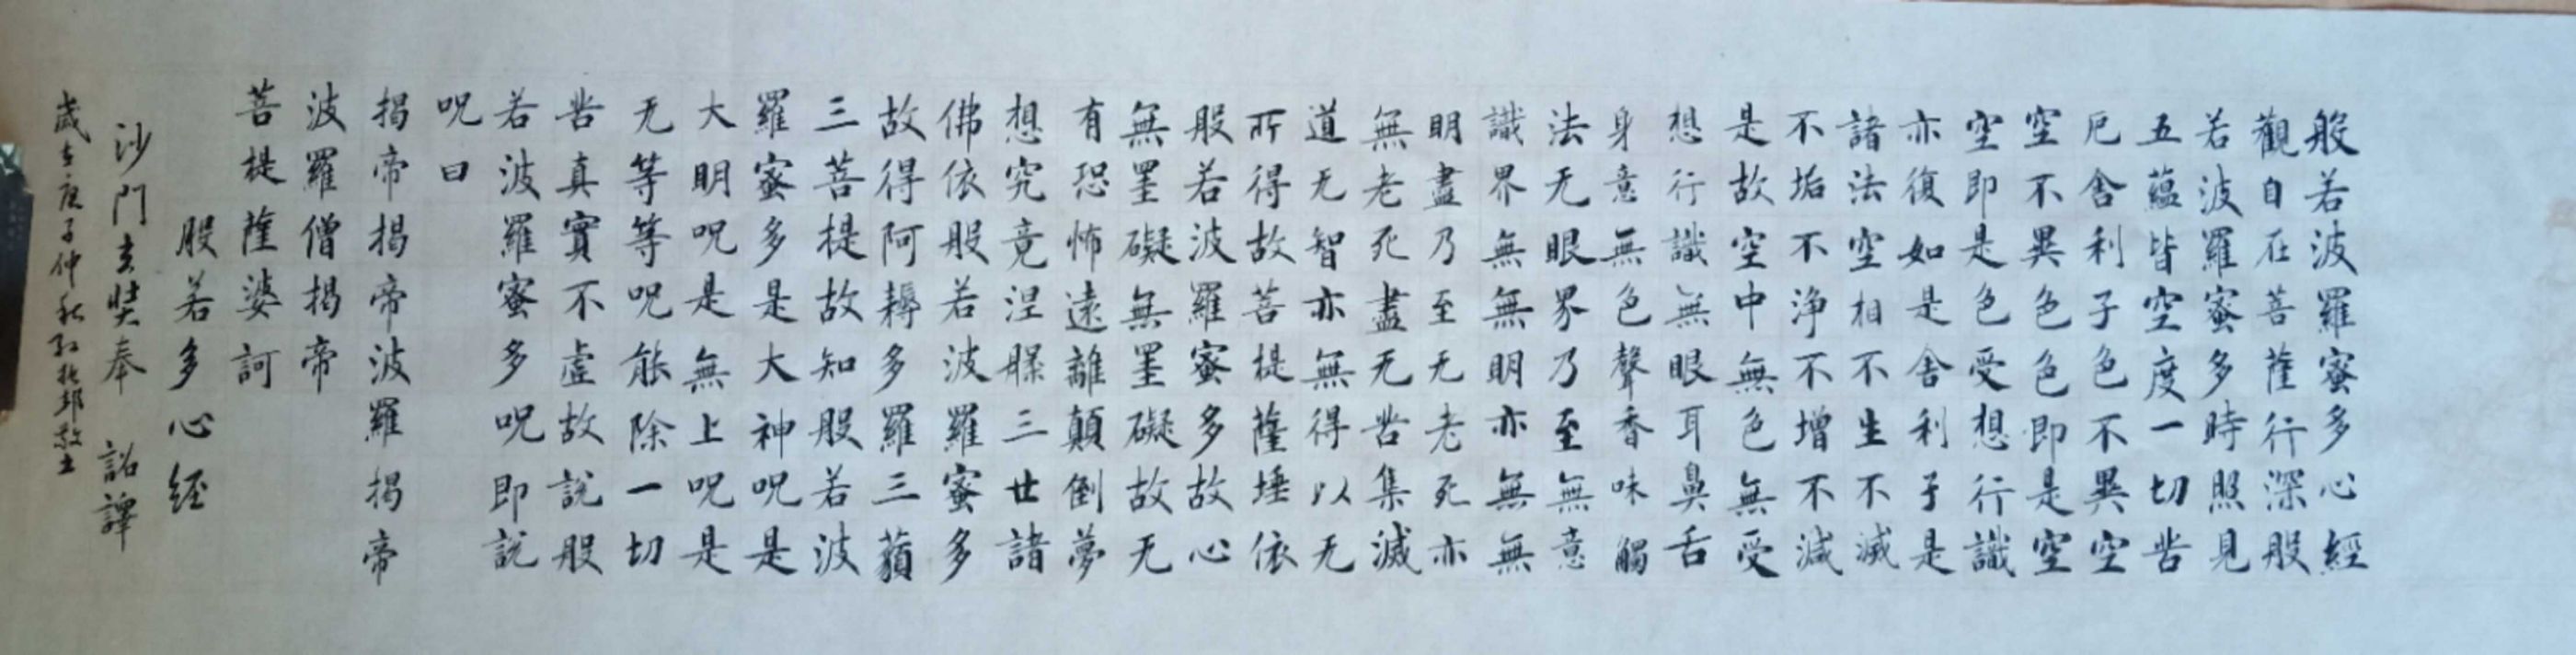 般若波羅蜜多心經
觀自在菩薩行深般
若波羅蜜多時照見
五蘊皆空度一切苦
厄舍利子色不異空
空不異色色即是空
空即是色受想行識
亦復如是舍利子是
諸法空相不生不滅
不垢不浄不增不減
是故空中無色無受
想行識無眼耳鼻舌
身意無色聲香味觸
法无眼界乃至無意
識界無無明亦無無
明盡乃至无老死亦
無老死盡无苦集滅
道无智亦無得以无
所得故菩提薩埵依
般若波羅蜜多故心
無罣礙無罣礙故无
有恐怖遠離顛倒夢
想究竟涅槃三世諸
佛依般若波羅蜜多
故得阿耨多羅三藐
三菩提故知般若波
羅蜜多是大神呪是
大明呪是無上呪是
无等等呪能除一切
苦真實不虛故說般
若波羅蜜多呪即說
呪曰
揭帝揭帝波羅揭帝
波羅僧揭帝
菩提薩婆訶
般若多心經
沙門玄奘奉 詔譯
歲在庚子仲秋